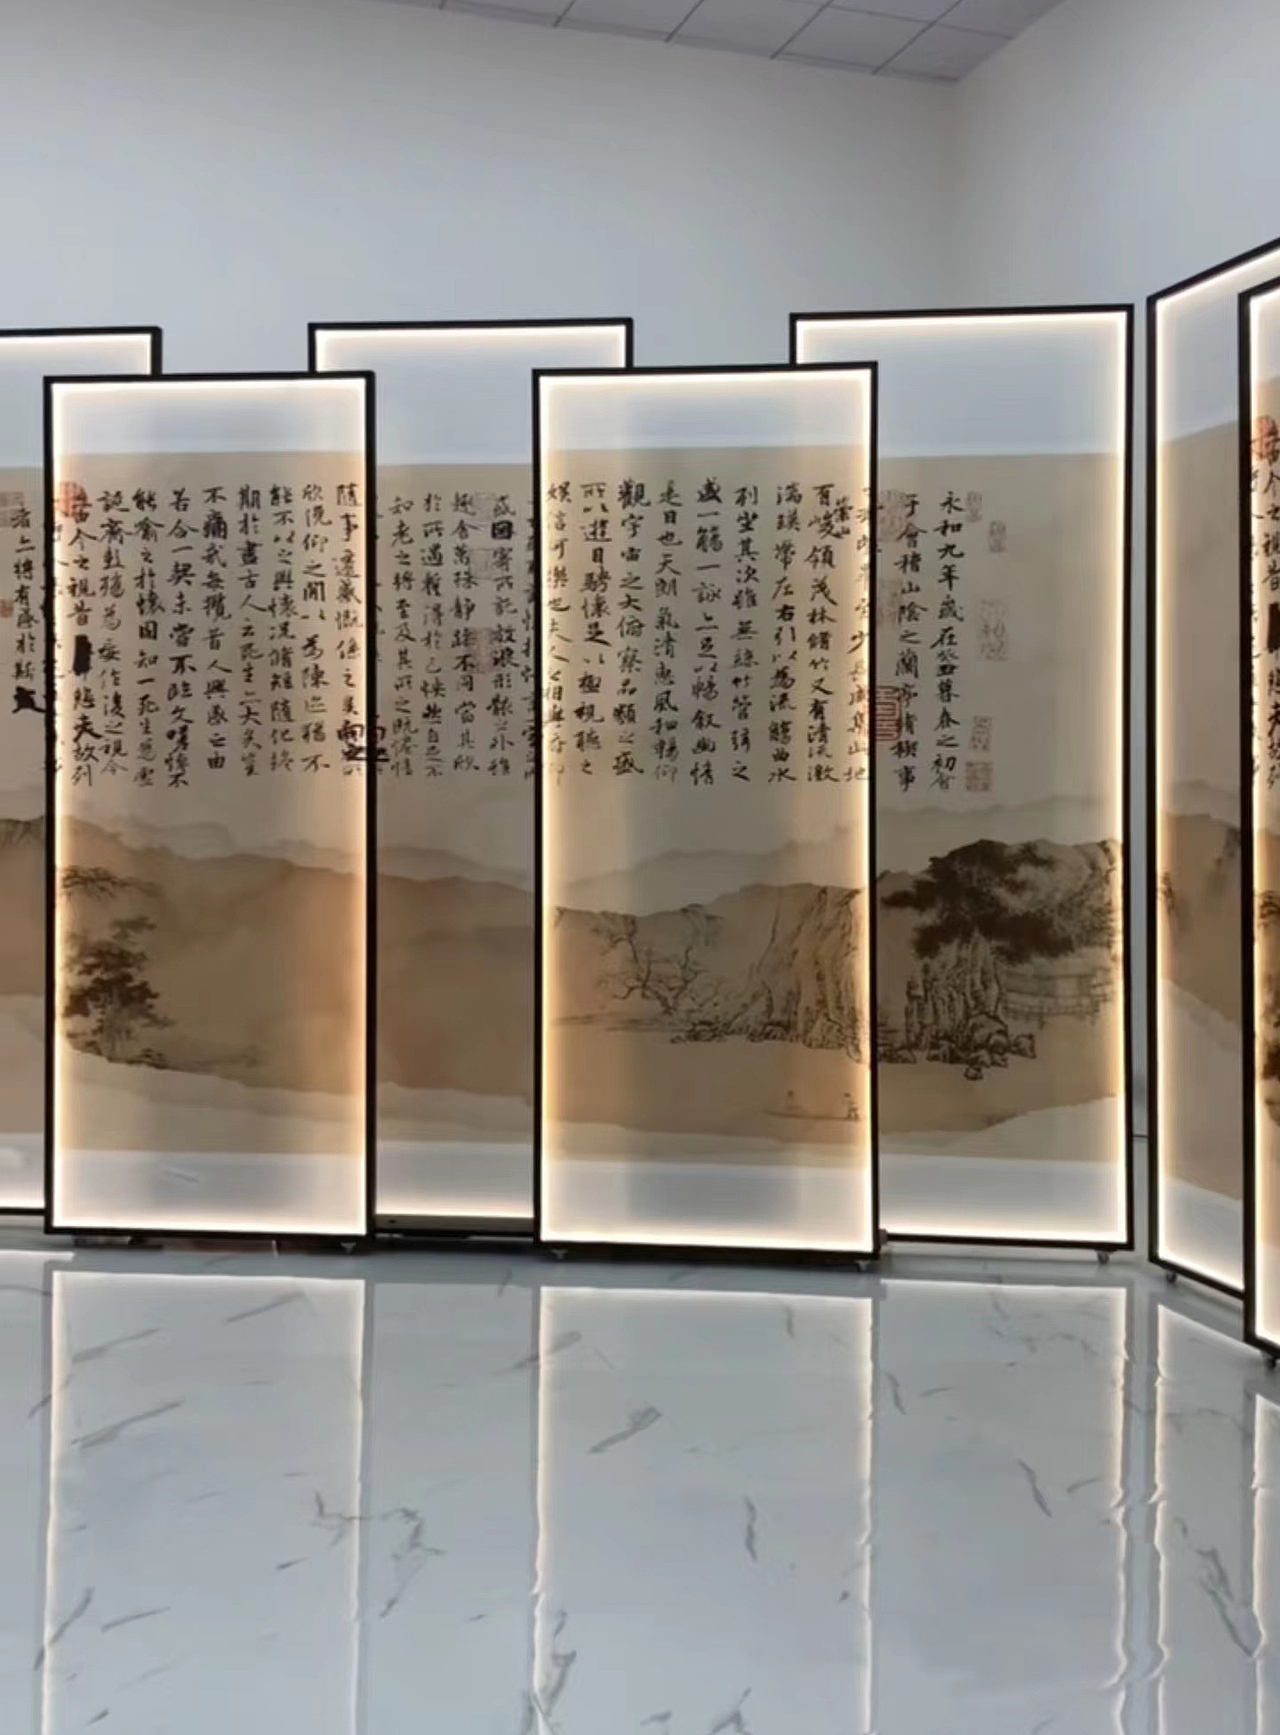 永和九年歲在癸丑暮春之初會
于會稽山陰之蘭亭脩稧事
少長咸集此地
有崇山峻領茂林脩竹又有清流激
湍暎帶左右引以為流觴曲水
列坐其次雖無絲竹管弦之
盛一觴一詠亦足以暢敘幽情
是日也天朗氣清惠風和暢仰
觀宇宙之大俯察品類之盛
所以遊目騁懷足以極視聽之
娛信可樂也夫人之相與俯仰
或因寄所託放浪形骸之外雖
趣舍萬殊靜躁不同當其欣
於所遇蹔得於己怏然自足不
知老之將至及其所之既惓情
隨事遷感慨係之矣向之所
欣俛仰之閒以為陳迹猶不
能不以之興懷況脩短隨化終
期於盡古人云死生亦大矣豈
不痛哉每攬昔人興感之由
若合一契未嘗不臨文嗟悼不
能喻之於懷固知一死生為虛
誕齊彭殤為妄作後之視今
亦由今之視昔悲夫故列
者亦將有感於斯文